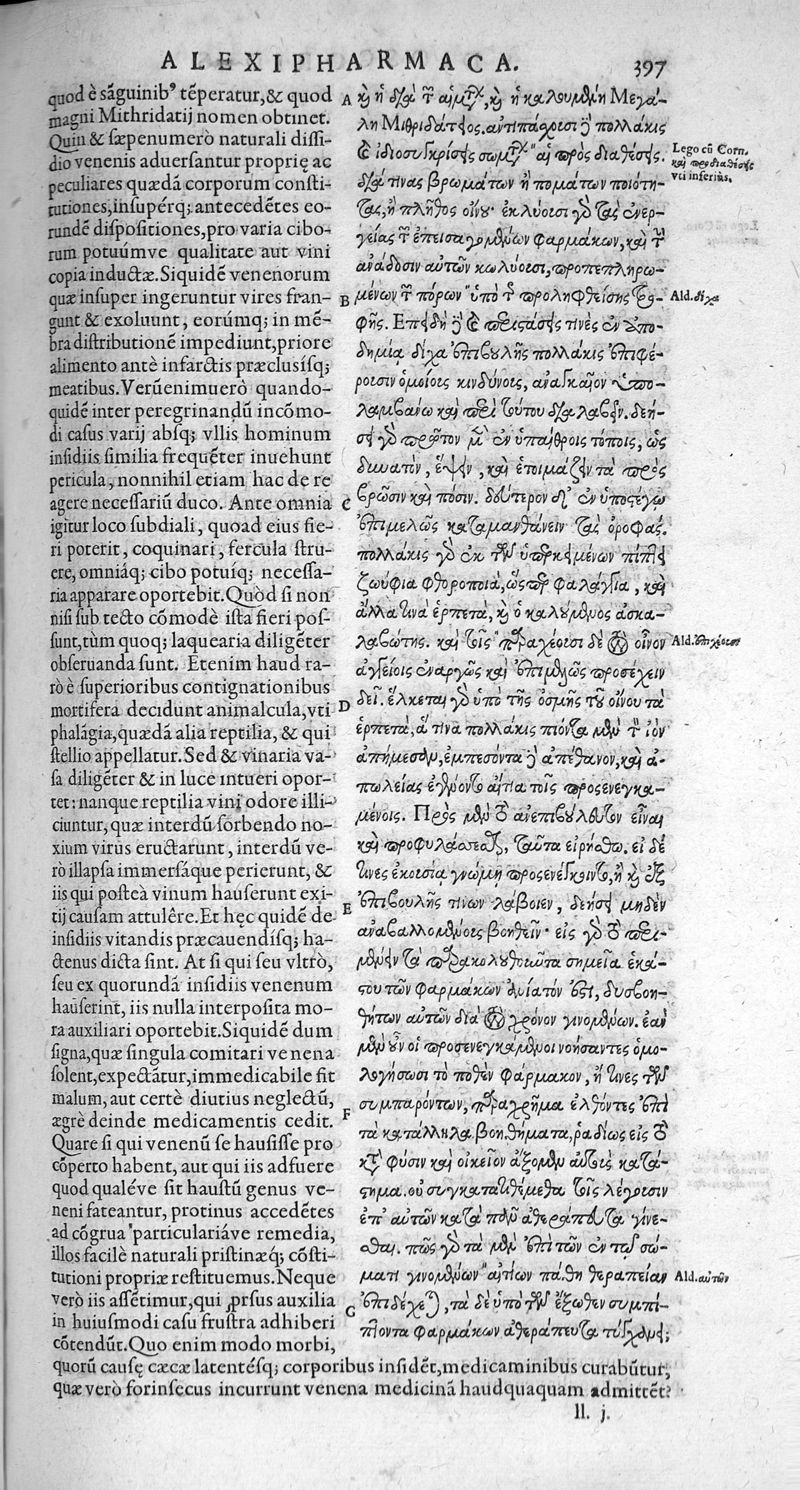 ALEXIPHARMACA. 397
quod è sãguinibꝰ tẽperatur, & quod
magni Mithridatij nomen obtinet.
Quin & sæpenumerò naturali dissi-
dio venenis aduersantur proprię ac
peculiares quædã corporum consti-
tutiones, insupérq; antecedẽtes eo-
rundẽ dispositiones, pro varia cibo-
rum potuúmve qualitate aut vini
copia inductæ. Siquidẽ venenorum
quæ insuper ingeruntur vires fran-
gunt & exoluunt, eorúmq; in mẽ-
bra distributionẽ impediunt, priore
alimento antè infarctis præclusísq;
meatibus. Verũenimuerò quando-
quidẽ inter peregrinandũ incõmo-
di casus varij absq; vllis hominum
insidiis similia frequẽter inuehunt
pericula, nonnihil etiam hac de re
agere necessariũ duco. Ante omnia
igitur loco subdiali, quoad eius fie-
ri poterit, coquinari, fercula stru-
ere, omniáq; cibo potuíq; necessa-
ria apparare oportebit. Quòd si non
nisi sub tecto cõmodè ista fieri pos-
sunt, tùm quoq; laquearia diligẽter
obseruanda sunt. Etenim haud ra-
rò è superioribus contignationibus
mortifera decidunt animalcula, vti
phalãgia, quædã alia reptilia, & qui
stellio appellatur. Sed & vinaria va-
sa diligẽter & in luce intueri opor-
tet: nanque reptilia vini odore illi-
ciuntur, quæ interdũ sorbendo no-
xium virus eructarunt, interdũ ve-
rò illapsa immersáque perierunt, &
iis qui posteà vinum hauserunt exi-
tij causam attulêre. Et hęc quidẽ de
insidiis vitandis præcauendísq; ha-
ctenus dicta sint. At si qui seu vltrò,
seu ex quorundã insidiis venenum
hauserint, iis nulla interposita mo-
ra auxiliari oportebit. Siquidẽ dum
signa, quæ singula comitari venena
solent, expectãtur, immedicabile fit
malum, aut certè diutius neglectũ,
ægrè deinde medicamentis cedit.
Quare si qui venenũ se hausisse pro
cõperto habent, aut qui iis adfuere
quod qualéve sit haustũ genus ve-
neni fateantur, protinus accedẽtes
ad cõgrua particulariáve remedia,
illos facilè naturali pristinæq; cõsti-
tutioni propriæ restituemus. Neque
verò iis assẽtimur, qui prsus auxilia
in huiusmodi casu frustra adhiberi
cõtendũt. Quo enim modo morbi,
A καὶ ἡ διὰ τῶν αἱμάτων, καὶ ἡ καλουμένη Μεγά-
λη Μιθριδάτειος. ἀντιπάσχουσι δὲ πολλάκις
καὶ ἰδιοσυγκρίσεις σωμάτων " αἱ πρὸς διαθέσεις.
διά τινας βρωμάτων ἢ πομάτων ποιότη-
τας, ἢ πλῆθος οἴνου· ἐκλύουσι γὰρ τὰς ἐνερ-
γείας τῶν ἐπεισαγομένων φαρμάκων, καὶ τὴν
ἀνάδοσιν αὐτῶν κωλύουσι, προπεπληρω-
B μένων τῶν πόρων " ὑπὸ τῆς προληφθείσης τρο-
φῆς. Ἐπειδὴ δὲ καὶ περιστάσεις τινὲς ἐν ἀπο-
δημίᾳ δίχα ἐπιβουλῆς πολλάκις ἐπιφέ-
ρουσιν ὁμοίους κινδύνους, ἀναγκαῖον ὑπο-
λαμβάνω καὶ περὶ τούτου διαλαβεῖν. δεή-
σει γὰρ πρῶτον μὲν ἐν ὑπαίθροις τόποις, ὡς
δυνατὸν, ἕψειν, καὶ ἑτοιμάζειν τὰ πρὸς
C βρῶσιν καὶ πόσιν. δεύτερον δ' ἐν ὑποστέγῳ
ἐπιμελῶς καταμανθάνειν τὰς ὀροφάς.
πολλάκις γὰρ ἐκ τῶν ὑπερκειμένων πίπτει
ζωΰφια φθοροποιὰ, ὥσπερ φαλάγγια, καὶ
ἄλλα τινὰ ἑρπετὰ, καὶ ὁ καλούμενος ἀσκα-
λαβώτης. καὶ τοῖς " παραχέουσι δὲ τὸν οἶνον
ἀγγείοις ἐναργῶς καὶ ἐπιμελῶς προσέχειν
D δεῖ. ἕλκεται γὰρ ὑπὸ τῆς ὀσμῆς τοῦ οἴνου τὰ
ἑρπετὰ, ἅ τινα πολλάκις πιόντα μὲν τὸν ἰὸν
ἀπήμεσαν, ἐμπεσόντα δὲ ἀπέθανον, καὶ ἀ-
πωλείας ἐγένοντο αἴτια τοῖς προσενεγκα-
μένοις. Πρὸς μὲν τὸ ἀνεπιβούλευτον εἶναι
καὶ προφυλάσσεσθαι, ταῦτα εἰρήσθω. εἰ δέ
τινες ἑκουσίᾳ γνώμῃ προσενέγκοιντο, ἢ καὶ ἐξ
E ἐπιβουλῆς τινων λάβοιεν, δεήσει μηδὲν
ἀναβαλλομένοις βοηθεῖν· εἰς γὰρ τὸ περι-
μένειν τὰ παρακολουθοῦντα σημεῖα ἑκά-
στου τῶν φαρμάκων ἀνίατόν ἐστι, δυσβοη-
θήτων αὐτῶν διὰ τὸν χρόνον γινομένων. ἐὰν
μὲν οὖν οἱ προσενεγκάμενοι νοήσαντες ὁμο-
λογήσωσι τὸ ποθὲν φάρμακον, ἤ τινες τῶν
F συμπαρόντων, παραχρῆμα ἐλθόντες ἐπὶ
τὰ κατάλληλα βοηθήματα, ῥᾳδίως εἰς τὸ
κατὰ φύσιν καὶ οἰκεῖον ἄξομεν αὐτοὺς κατά-
στημα. οὐ συγκατατιθέμεθα τοῖς λέγουσιν
ἐπ' αὐτῶν κατὰ πολὺ ἀθεράπευτα γίνε-
σθαι. πῶς γὰρ τὰ μὲν ἐπὶ τῶν ἐν τῷ σώ-
ματι γινομένων " αἰτίων πάθη θεραπείαν
G ἐπιδέχεται, τὰ δὲ ὑπὸ τῶν ἔξωθεν συμπι-
πτόντα φαρμάκων ἀθεράπευτα τυγχάνει;
Lego cũ Corn.
καὶ προδιαθέσεις
vti inferiùs.
Ald. δίχα
Ald. ἐπιχέουσι
Ald. αὐτῶν
quorũ causę cæcæ latentésq; corporibus insidẽt, medicaminibus curabũtur,
quæ verò forinsecus incurrunt venena medicinã haudquaquam admittẽt?
ll. j.